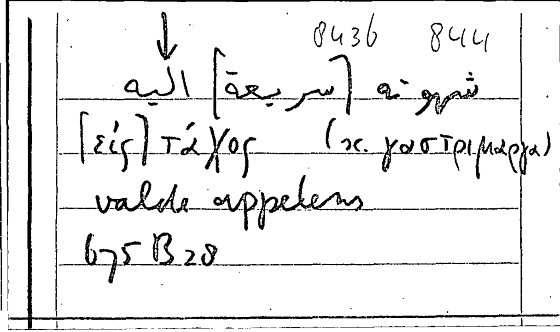 8436 844
شهوته [سريعة] اليه
[εἰς] τάχος (κ. γαστριμαργα)
valde appetens
675 B 28